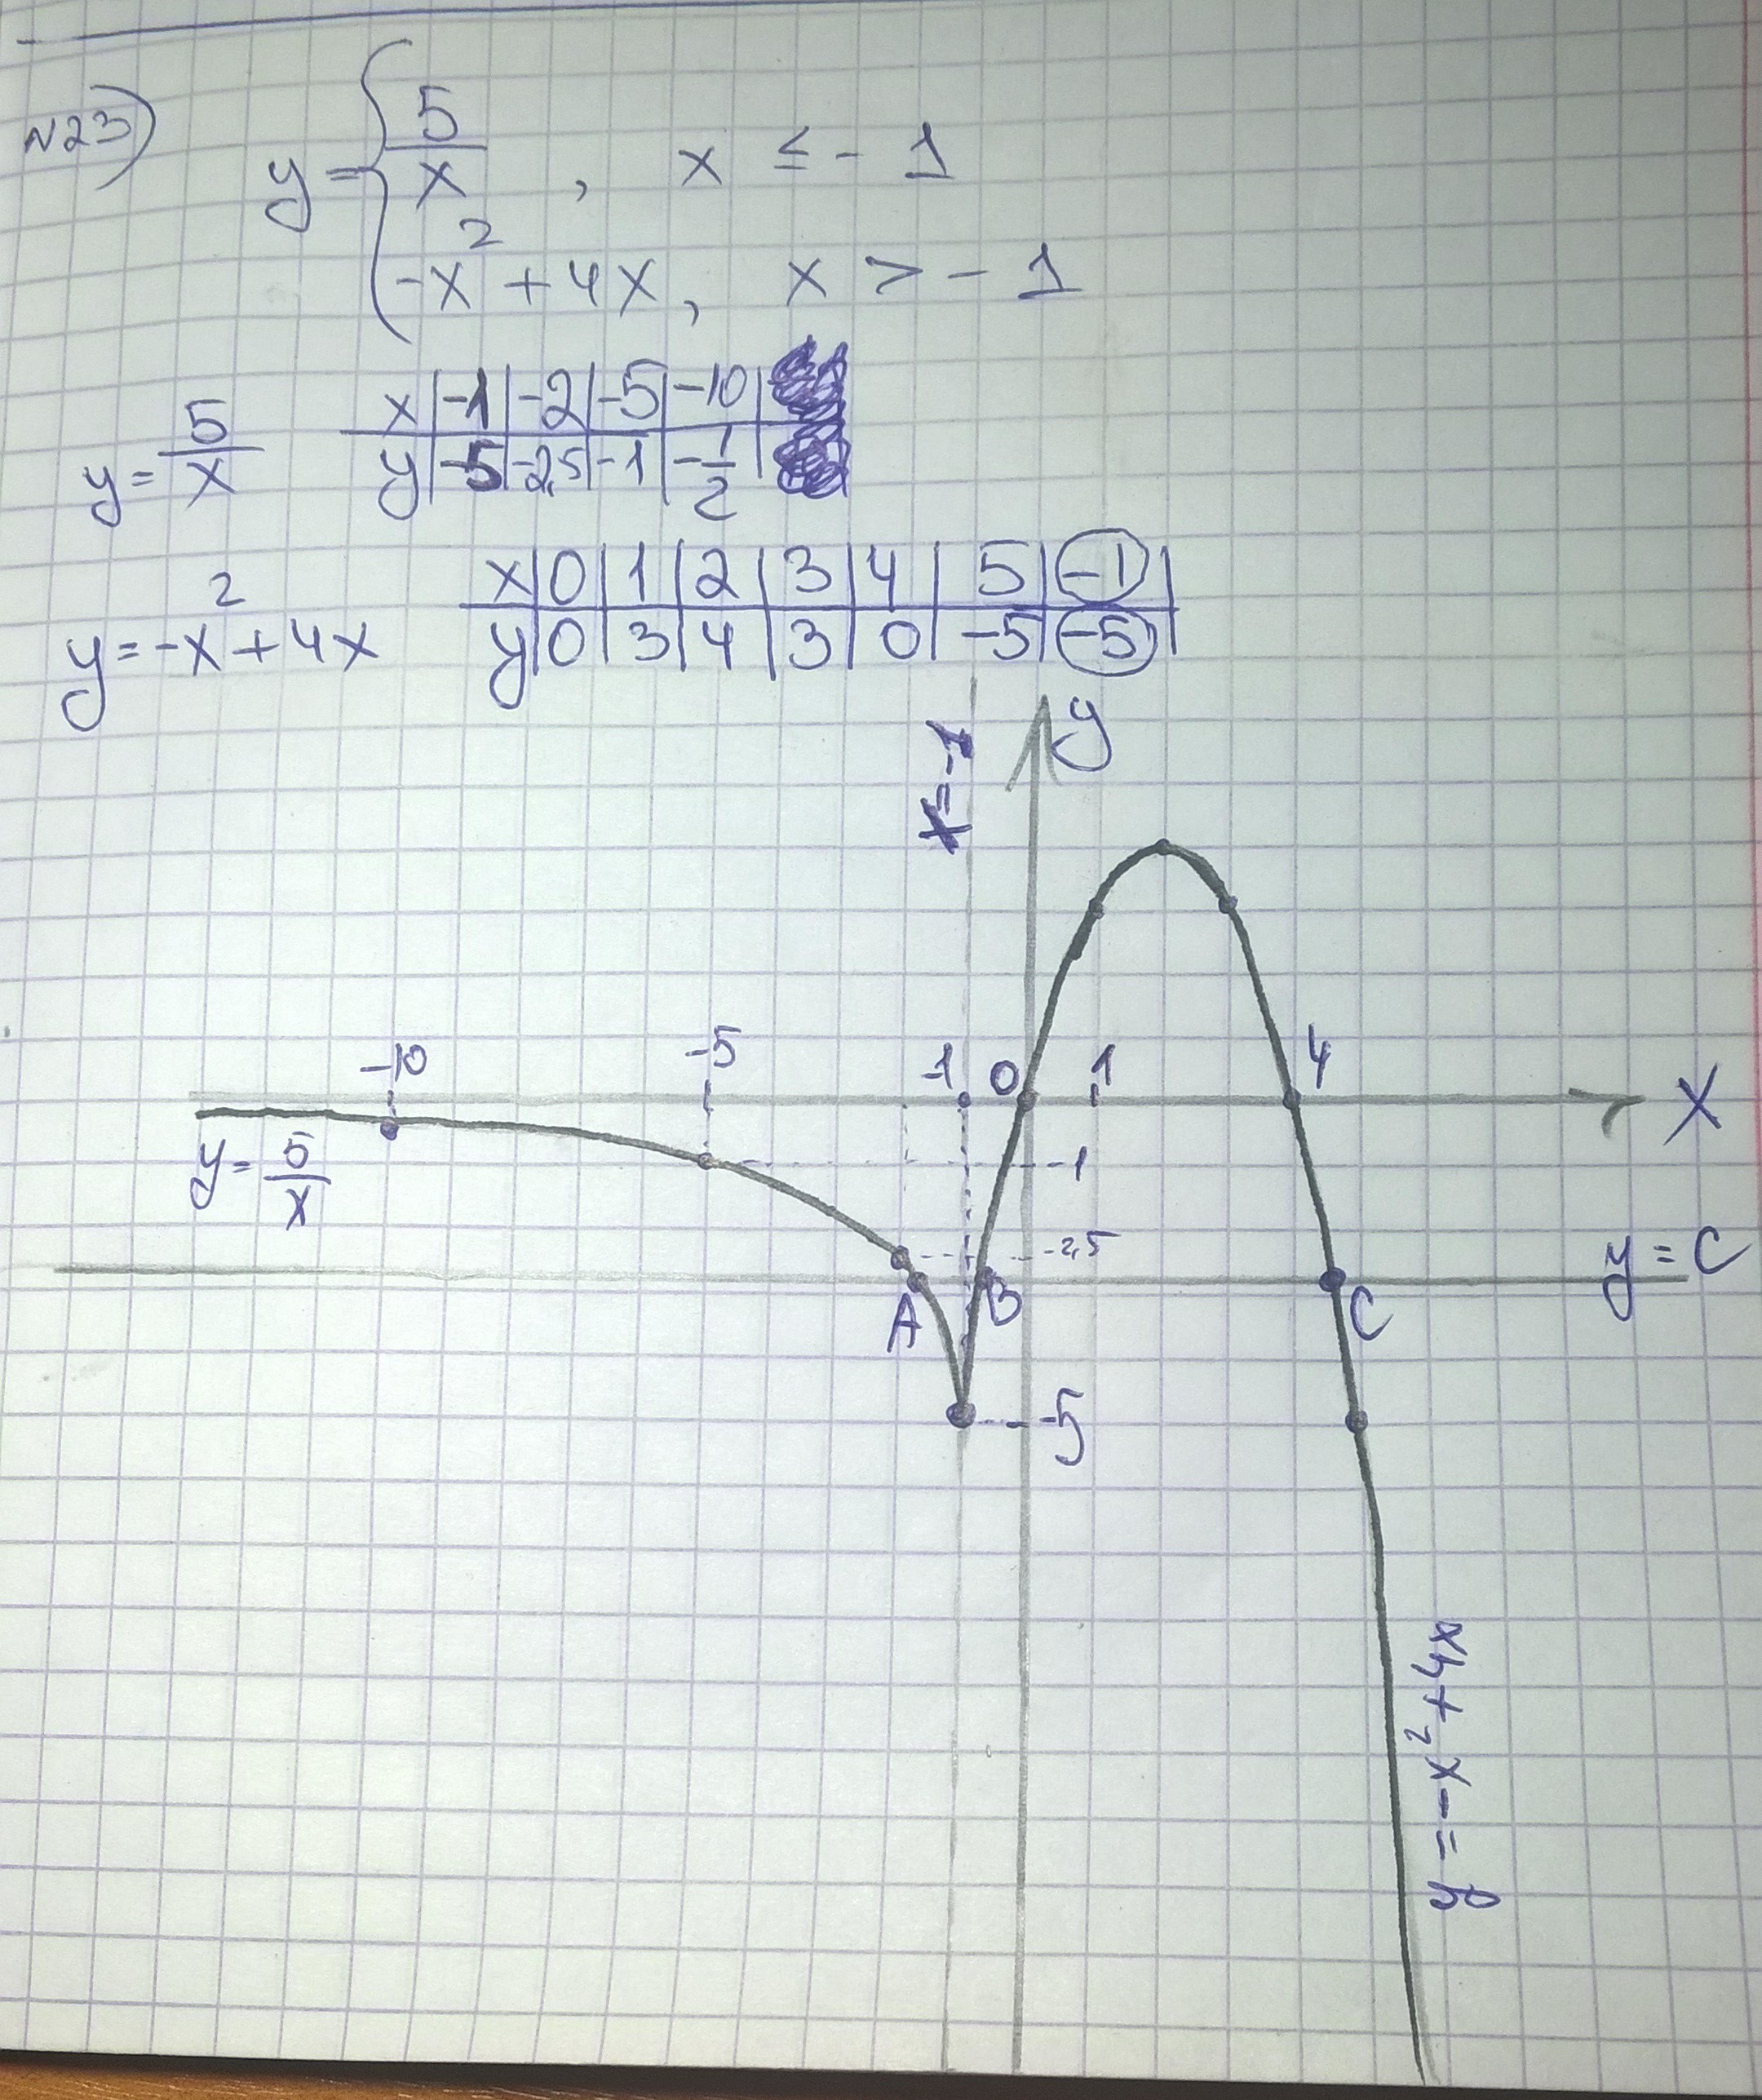 N23) y = { 5/x , x ≤ -1
-x² + 4x, x > -1
y = 5/x
x | -1 | -2 | -5 | -10 |
y | -5 | -2,5 | -1 | -1/2 |
y = -x² + 4x
x | 0 | 1 | 2 | 3 | 4 | 5 | -1 |
y | 0 | 3 | 4 | 3 | 0 | -5 | -5 |
x = -1
y
-10 -5 -1 0 1 4 X
y = 5/x
-1
-2,5
y = C
A B C
-5
y = -x² + 4x